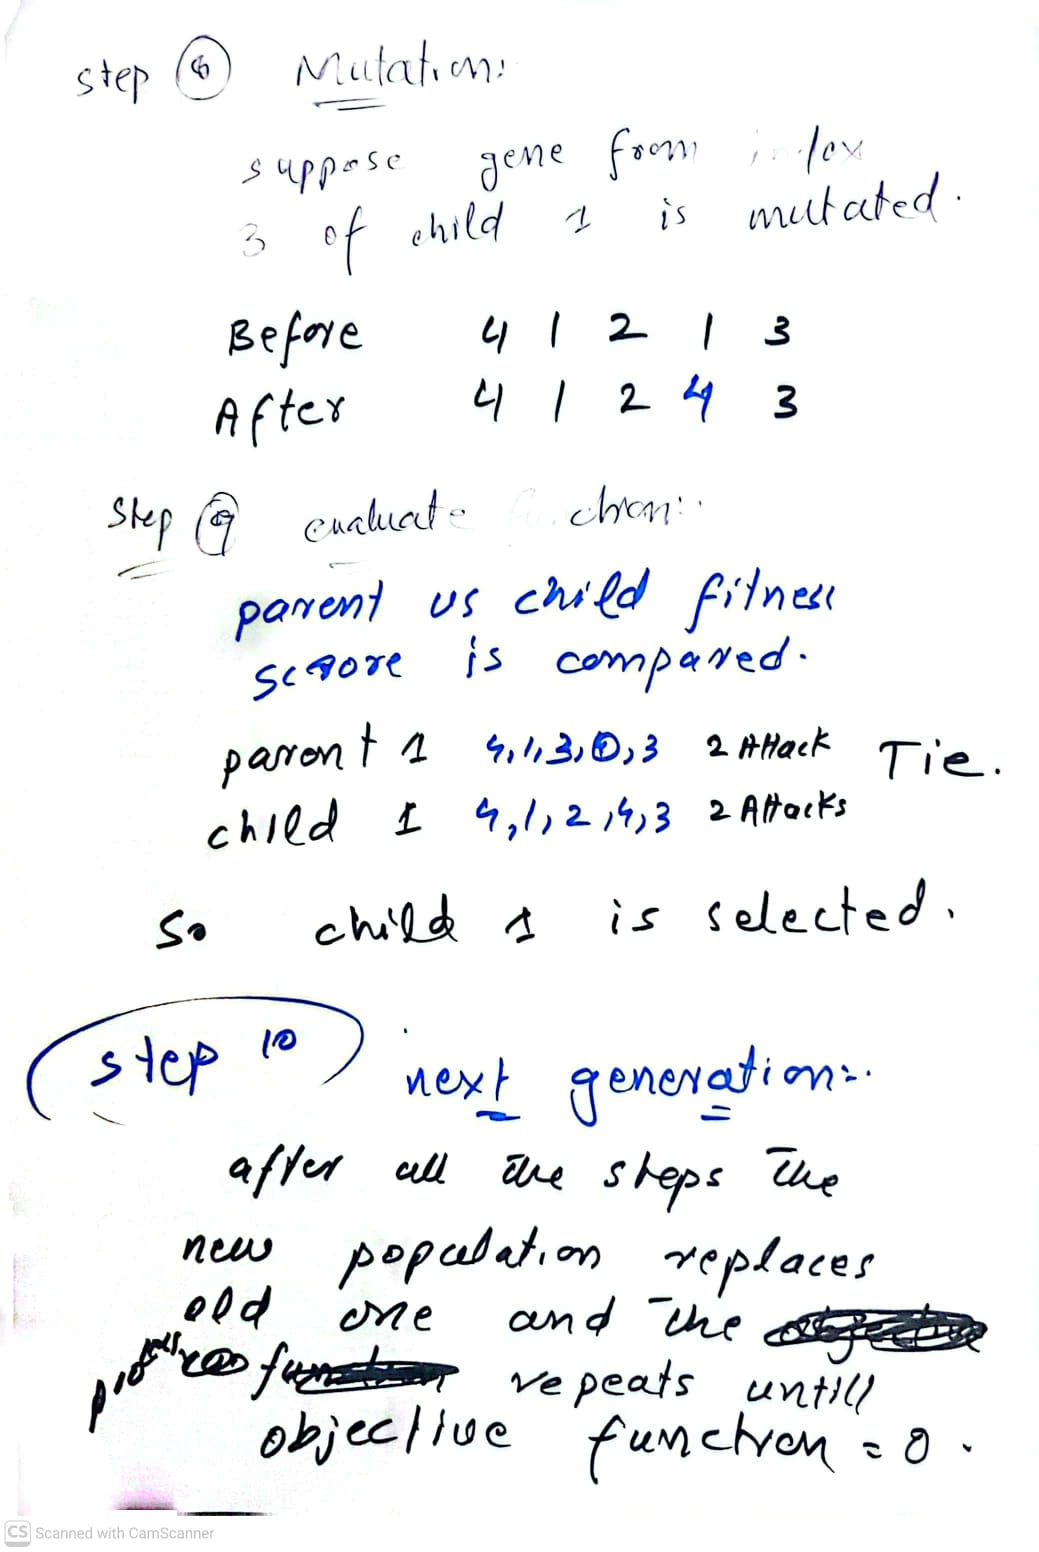 step 8 Mutation:
suppose gene from index
3 of child 1 is mutated.
Before 4 1 2 1 3
After 4 1 2 4 3
Step 9 evaluate function:
parent vs child fitness
score is compared.
parent 1 4,1,3,0,3 2 Attack Tie.
child 1 4,1,2,4,3 2 Attacks
So child 1 is selected.
step 10 next generation:
after all the steps the
new population replaces
old one and the
process repeats untill
objective function = 0.
CS Scanned with CamScanner